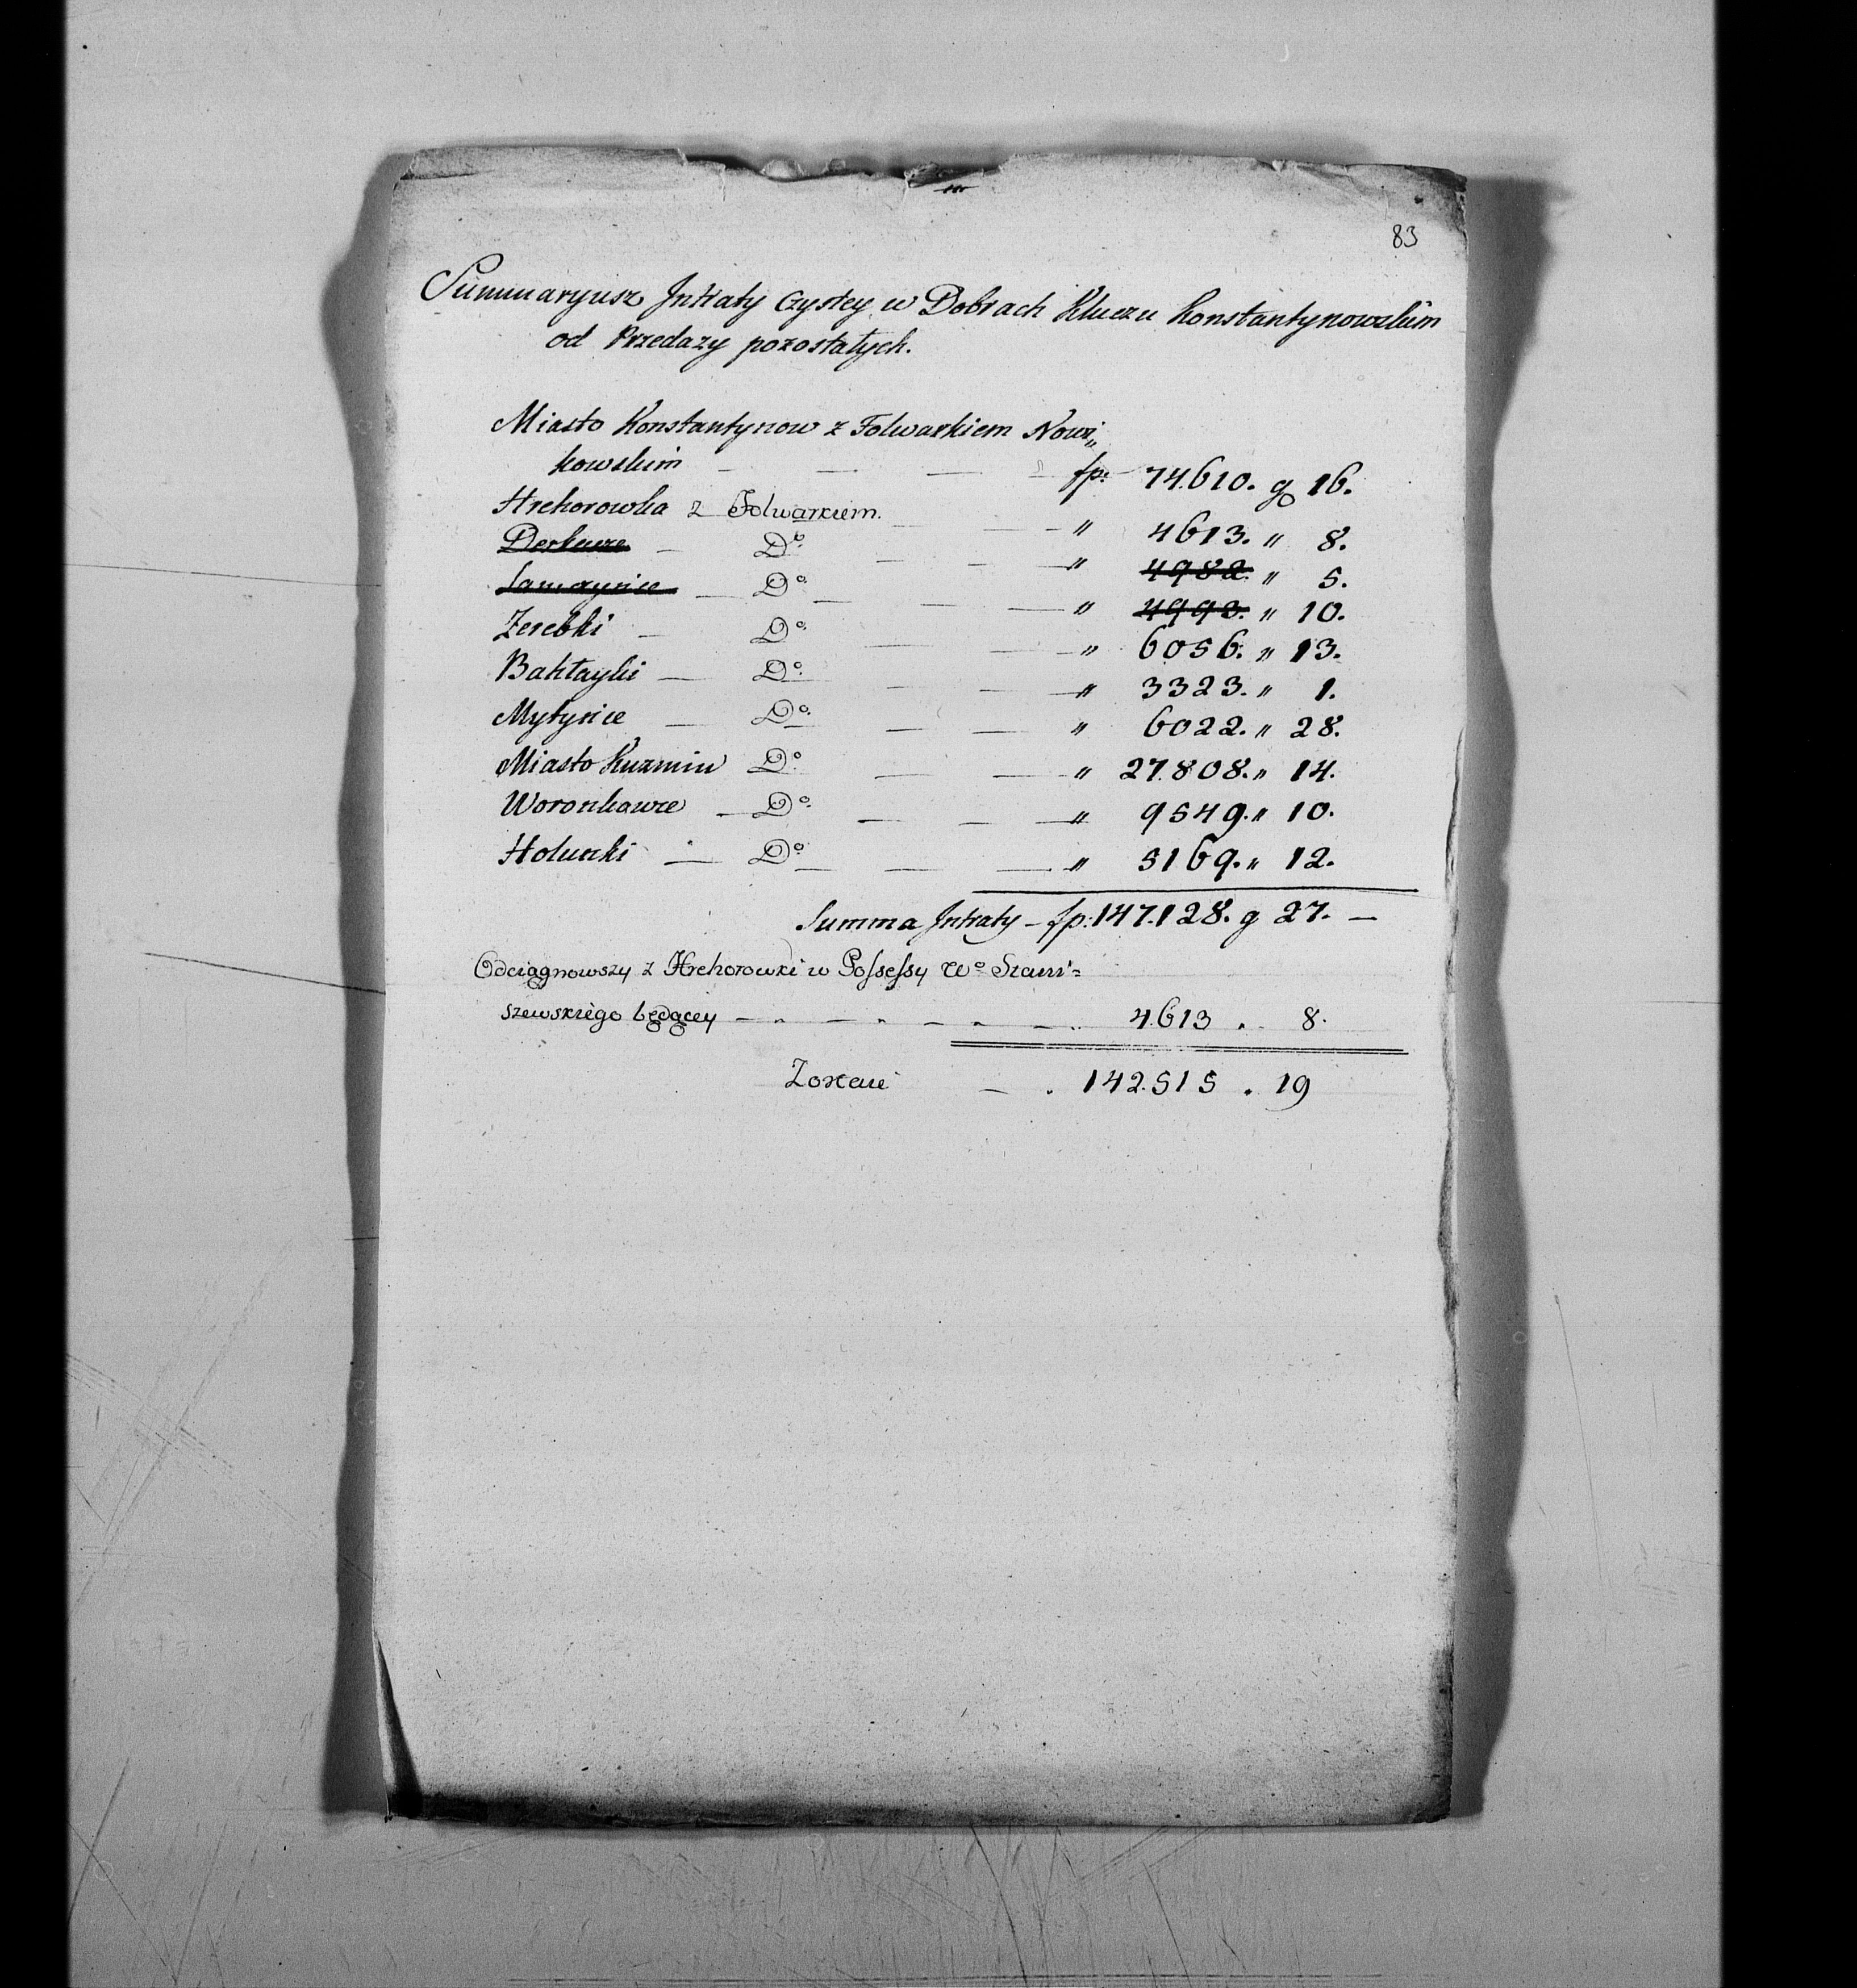 83
Summaryusz Jntraty Czystey w Dobrach Kluczu Konstantynowskim
od Przedazy pozostałych.
Miasto Konstantynow z Folwarkiem Nowi„
kowskim — — — fp: 74.610. g 16.
Hrehorowka z Folwarkiem. — — " 4613. " 8.
Derkacze — Do — — " 4982. " 5.
Samczynce — Do — — — " 4993. " 10.
Zerebki — Do — — " 6056. " 13.
Bahłayki — Do — — " 3323. " 1.
Mytynce — Do — — " 6022. " 28.
Miasto Kuzmin Do — — " 27.808. " 14.
Woronkowce — Do — — — " 9549. " 10.
Hołunki — Do — — — " 5169. " 12.
Summa Jntraty — fp: 147.128. g 27. —
Odciągnowszy z Hrehorowki w Possessy Wo Szani=
szewskiego będącey — — — — 4.613 . 8.
Zostaie — . 142.515 . 19